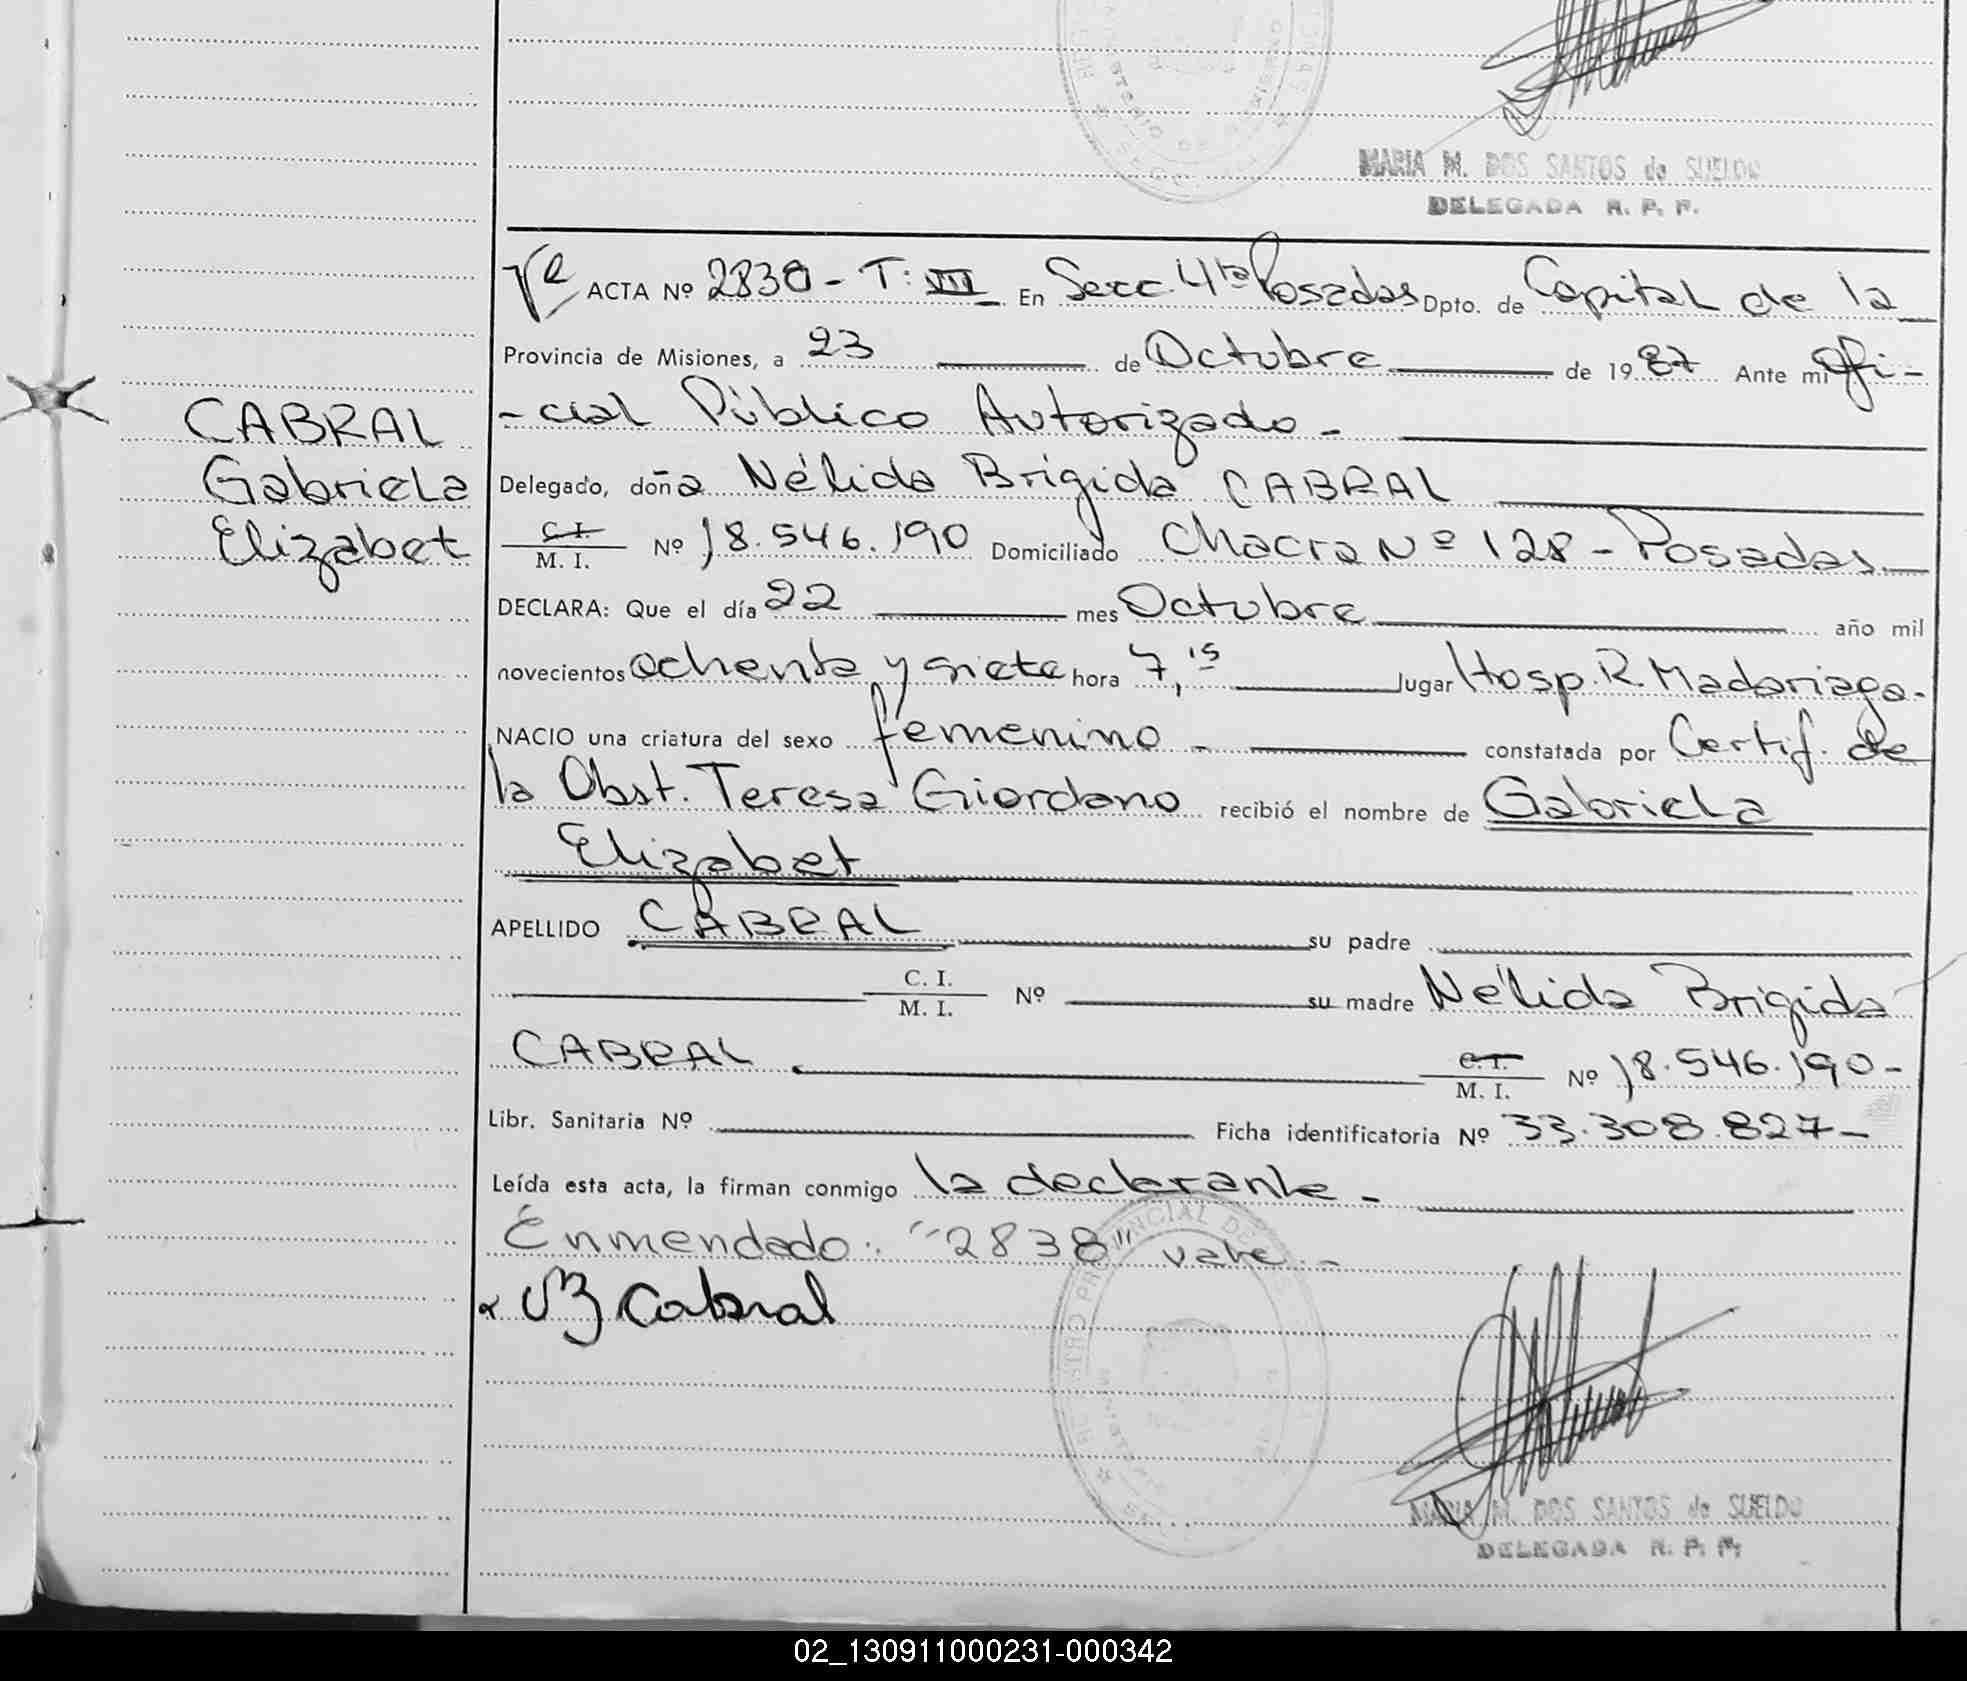 MARIA M. DOS SANTOS de SUELDO
DELEGADA R. P. P.
ACTA Nº 2838 - T: VIII - En Secc. 4ta Posadas Dpto. de Capital de la
Provincia de Misiones, a 23 de Octubre de 1987 Ante mi Ofi-
-cial Público Autorizado -
CABRAL
Gabriela
Elizabet
Delegado, doña Nélida Brígida CABRAL
C. I.
M. I. Nº 18.546.190 Domiciliado Chacra Nº 128 - Posadas
DECLARA: Que el día 22 mes Octubre año mil
novecientos ochenta y siete hora 7,15 lugar Hosp. R. Madariaga.
NACIO una criatura del sexo femenino - constatada por Certif. de
la Obst. Teresa Giordano recibió el nombre de Gabriela
Elizabet
APELLIDO CABRAL su padre
C. I.
M. I. Nº su madre Nélida Brígida
CABRAL C. I.
M. I. Nº 18.546.190-
Libr. Sanitaria Nº Ficha identificatoria Nº 33.308.827-
Leída esta acta, la firman conmigo la declarante -
Enmendado: "2838" vale. -
Cabral
MARIA M. DOS SANTOS de SUELDO
DELEGADA R. P. P.
02_130911000231-000342